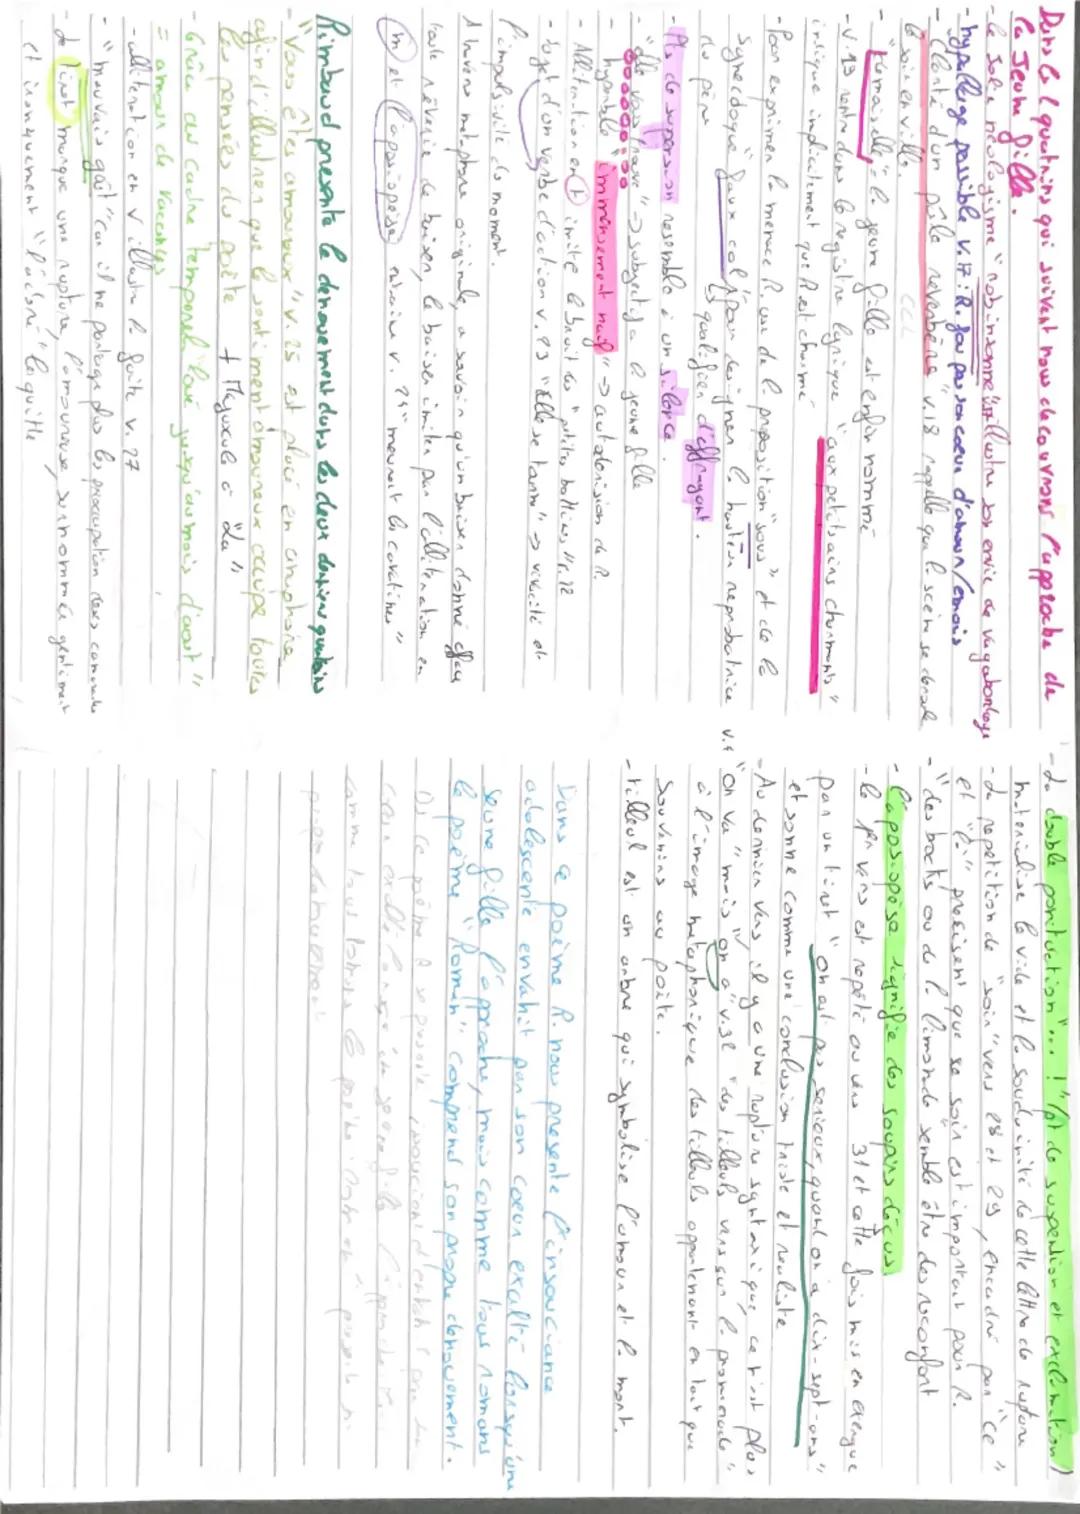 Dans les quatrains qui suivent nous découvrons l'approche de
la Jeune fille.
- le solie néologisme "robinsonne" illustre son envie de vagabondage
- hypallage possible v.17 : R. fou pas son coeur d'amour/émois
- "clarté d'un pâle réverbère" v.18 rappelle que la scène se déroule
le soir en ville. CCL
- "demoiselle" = la jeune fille est enfin nommé
- v.19 rentre dans le registre lyrique "aux petits airs charmants"
indique implicitement que R. est charmé
- Pour exprimer la menace R. use de la préposition "sous" et de la
synecdoque "faux col" pour designer la hauteur reprobatrice
du père
qualifier d'effrayant.
- Pts de suspension ressemble à un silence.
- "elle vous trouve" -> subjectif à la jeune fille
hyperbole "immensement naïf" -> autodérision de R.
- Allitération en t imite le bruit des "petites bottines" v.22
- sujet d'un verbe d'action v.23 "elle se tourne" -> vivacité et
l'impulsivité du moment.
A travers métaphore originale, a savoir qu'un baiser donné
toute rêverie de baiser, le baiser imiter par l'allitération en
m et l'aposiopèse v. 24 "meurent les cavatines"
Rimbaud presente le denouement dans les deux derniers quatrains
- "Vous êtes amoureux" v.25 est placé en anaphore
afin d'illustrer que le sentiment amoureux occupe toutes
les pensées du poète + Majuscule à "La"
- Grâce au cadre temporel "loué jusqu'au mois d'août"
= amour de vacances
- allitération en v illustre la fuite v.27
- "mauvais goût" car il ne partage plus les préoccupation de ses camarades
- Le tiret marque une rupture, l'amoureuse, surnommée gentiment
et ironiquement "l'adoré" le quitte
- La double ponctuation "...!" (pt de suspension et exclamation)
materialise le vide et la soudainité de cette lettre de rupture
- La repetition de "soir" vers 28 et 29, encadré par "ce"
et "là" précisent que ce soir est important pour R.
- "des bocks ou de la limonade semble être des réconfort
- l'aposiopèse signifie des soupirs déçus
- le 1er vers est répété au vers 31 et cette fois mis en exergue
par un tiret "On est pas serieux, quand on a dix-sept ans"
et sonne comme une conclusion triste et realiste
- Au dernier vers il y a une rupture syntaxique, ce n'est plus
v.4 "on va" mais "on a" v.32 "des tilleuls verts sur la promenade"
à l'image métaphorique des tilleuls appartenant en tant que
souvenirs au poète.
- tilleul est un arbre qui symbolise l'amour et la mort.
Dans ce poème R. nous presente l'insouciance
adolescente envahit par son coeur exalté lorsqu'une
jeune fille l'approche, mais comme tous romans
le poème "Roman" comprend son propre dénouement.